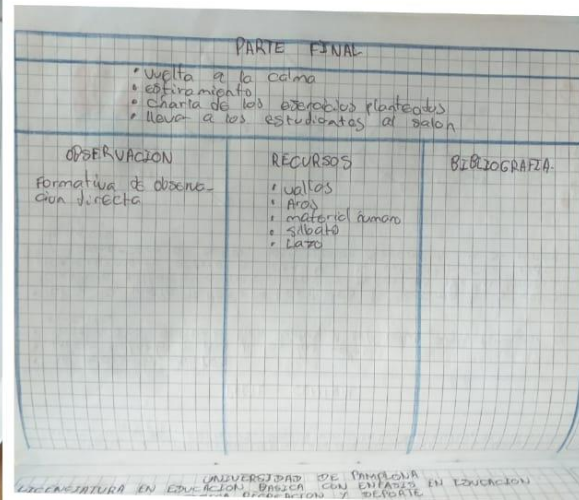 PARTE FINAL
• vuelta a la calma
• estiramiento
• charla de los ejercicios planteados
• lleva a los estudiantes al salon
OBSERVACION
Formativa de observa-
cion directa
RECURSOS
• vallas
• Aros
• material humano
• silbato
• Lazo
BIBLIOGRAFIA.
UNIVERSIDAD DE PAMPLONA
LICENCIATURA EN EDUCACION BASICA CON ENFASIS EN EDUCACION
RECREACION Y DEPORTE